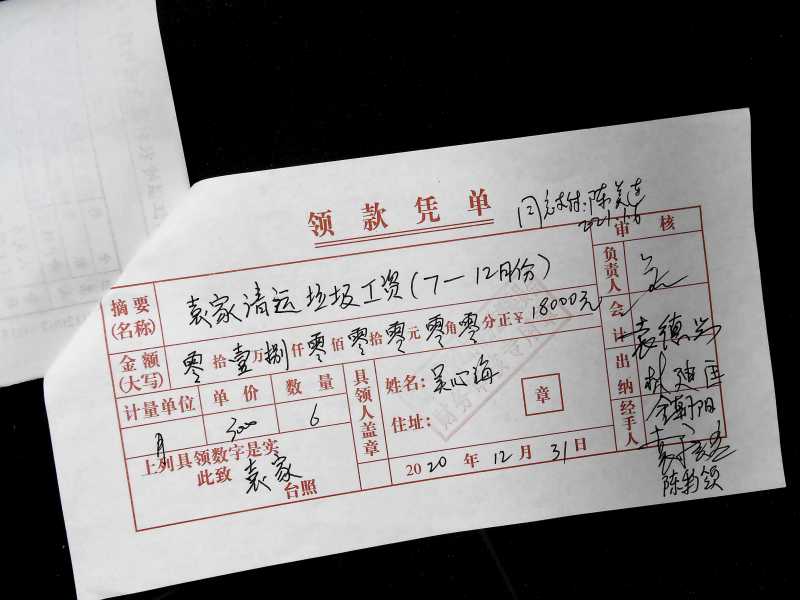 领款凭单
同意支付:陈美莲
2021.1.6
审核
摘要(名称) 袁家清运垃圾工资(7—12月份)
金额(大写) 零拾壹万捌仟零佰零拾零元零角零分正¥18000元
计量单位 单价 数量
月 3000 6
上列具领数字是实
此致 袁家 台照
具领人盖章
姓名:吴心海
住址:
章
2020年12月31日
负责人
会计 袁德
出纳 林
经手人